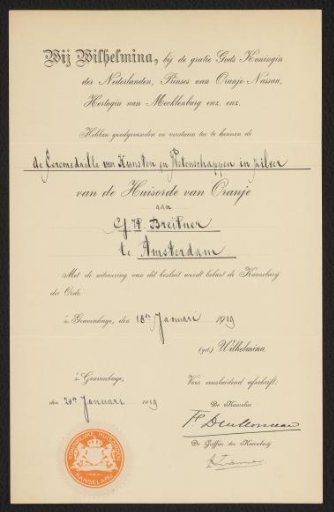 Wij Wilhelmina, bij de gratie Gods Koningin
der Nederlanden, Prinses van Oranje-Nassau,
Hertogin van Mecklenburg enz. enz.
Hebben goedgevonden en verstaan toe te kennen de
de Eeremedaille van Kunsten en Wetenschappen in zilver
van de Huisorde van Oranje
aan
G. H. Breitner
te Amsterdam
Met de uitvoering van dit besluit wordt belast de Kanselarij
der Orde.
's Gravenhage, den 18en Januari 1919
(get.) Wilhelmina
's Gravenhage,
den 20en Januari 1919
Voor eensluidend afschrift.
De Kanselier
De Griffier der Kanselarij
KANSELARIJ